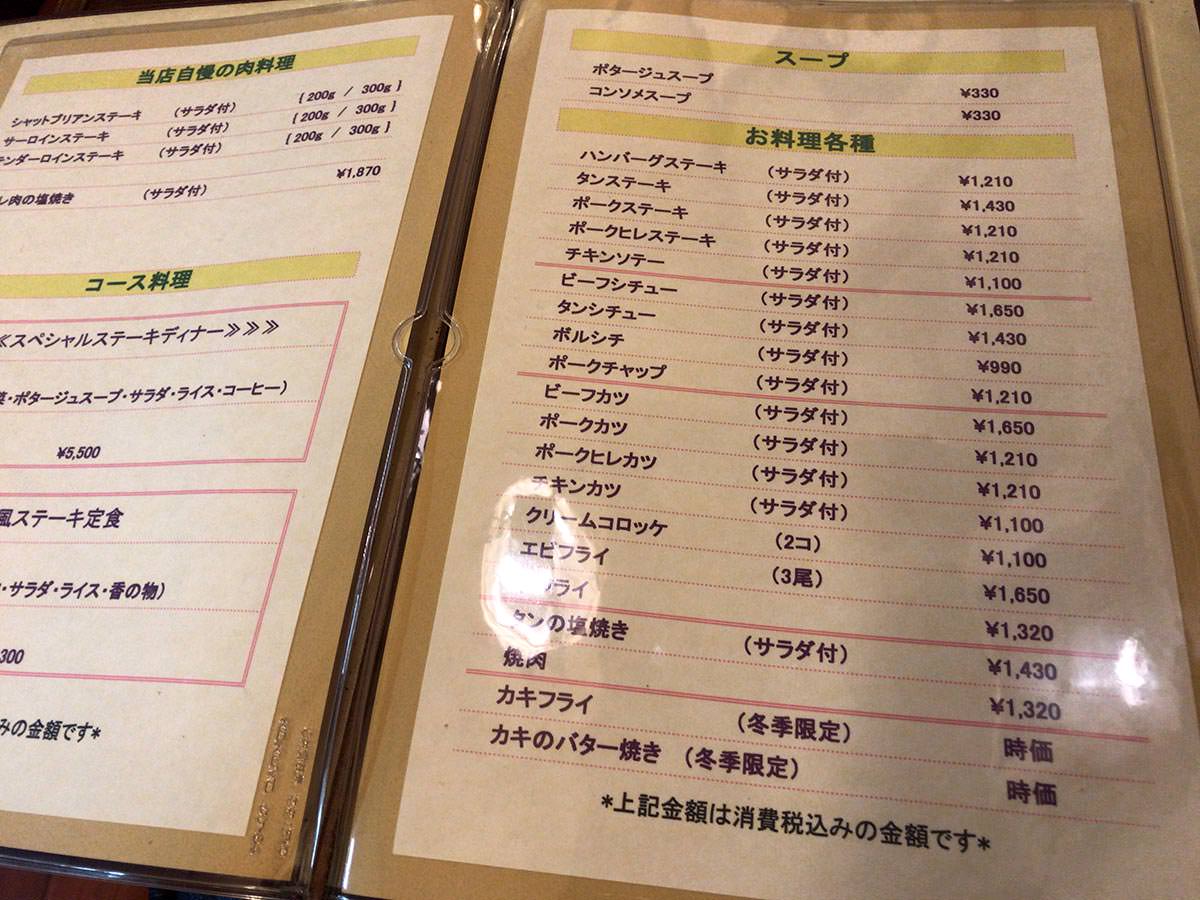 当店自慢の肉料理
シャットブリアンステーキ (サラダ付) [ 200g / 300g ]
サーロインステーキ (サラダ付) [ 200g / 300g ]
ンダーロインステーキ (サラダ付) [ 200g / 300g ]
レ肉の塩焼き (サラダ付) ¥1,870
コース料理
≪スペシャルステーキディナー≫≫≫
・ポタージュスープ・サラダ・ライス・コーヒー)
¥5,500
風ステーキ定食
・サラダ・ライス・香の物)
300
みの金額です*
スープ
ポタージュスープ ¥330
コンソメスープ ¥330
お料理各種
ハンバーグステーキ (サラダ付) ¥1,210
タンステーキ (サラダ付) ¥1,430
ポークステーキ (サラダ付) ¥1,210
ポークヒレステーキ (サラダ付) ¥1,210
チキンソテー (サラダ付) ¥1,100
ビーフシチュー (サラダ付) ¥1,650
タンシチュー (サラダ付) ¥1,430
ボルシチ (サラダ付) ¥990
ポークチャップ (サラダ付) ¥1,210
ビーフカツ (サラダ付) ¥1,650
ポークカツ (サラダ付) ¥1,210
ポークヒレカツ (サラダ付) ¥1,210
チキンカツ (サラダ付) ¥1,100
クリームコロッケ (2コ) ¥1,100
エビフライ (3尾) ¥1,650
フライ ¥1,320
タンの塩焼き (サラダ付) ¥1,430
焼肉 ¥1,320
カキフライ (冬季限定) 時価
カキのバター焼き (冬季限定) 時価
*上記金額は消費税込みの金額です*